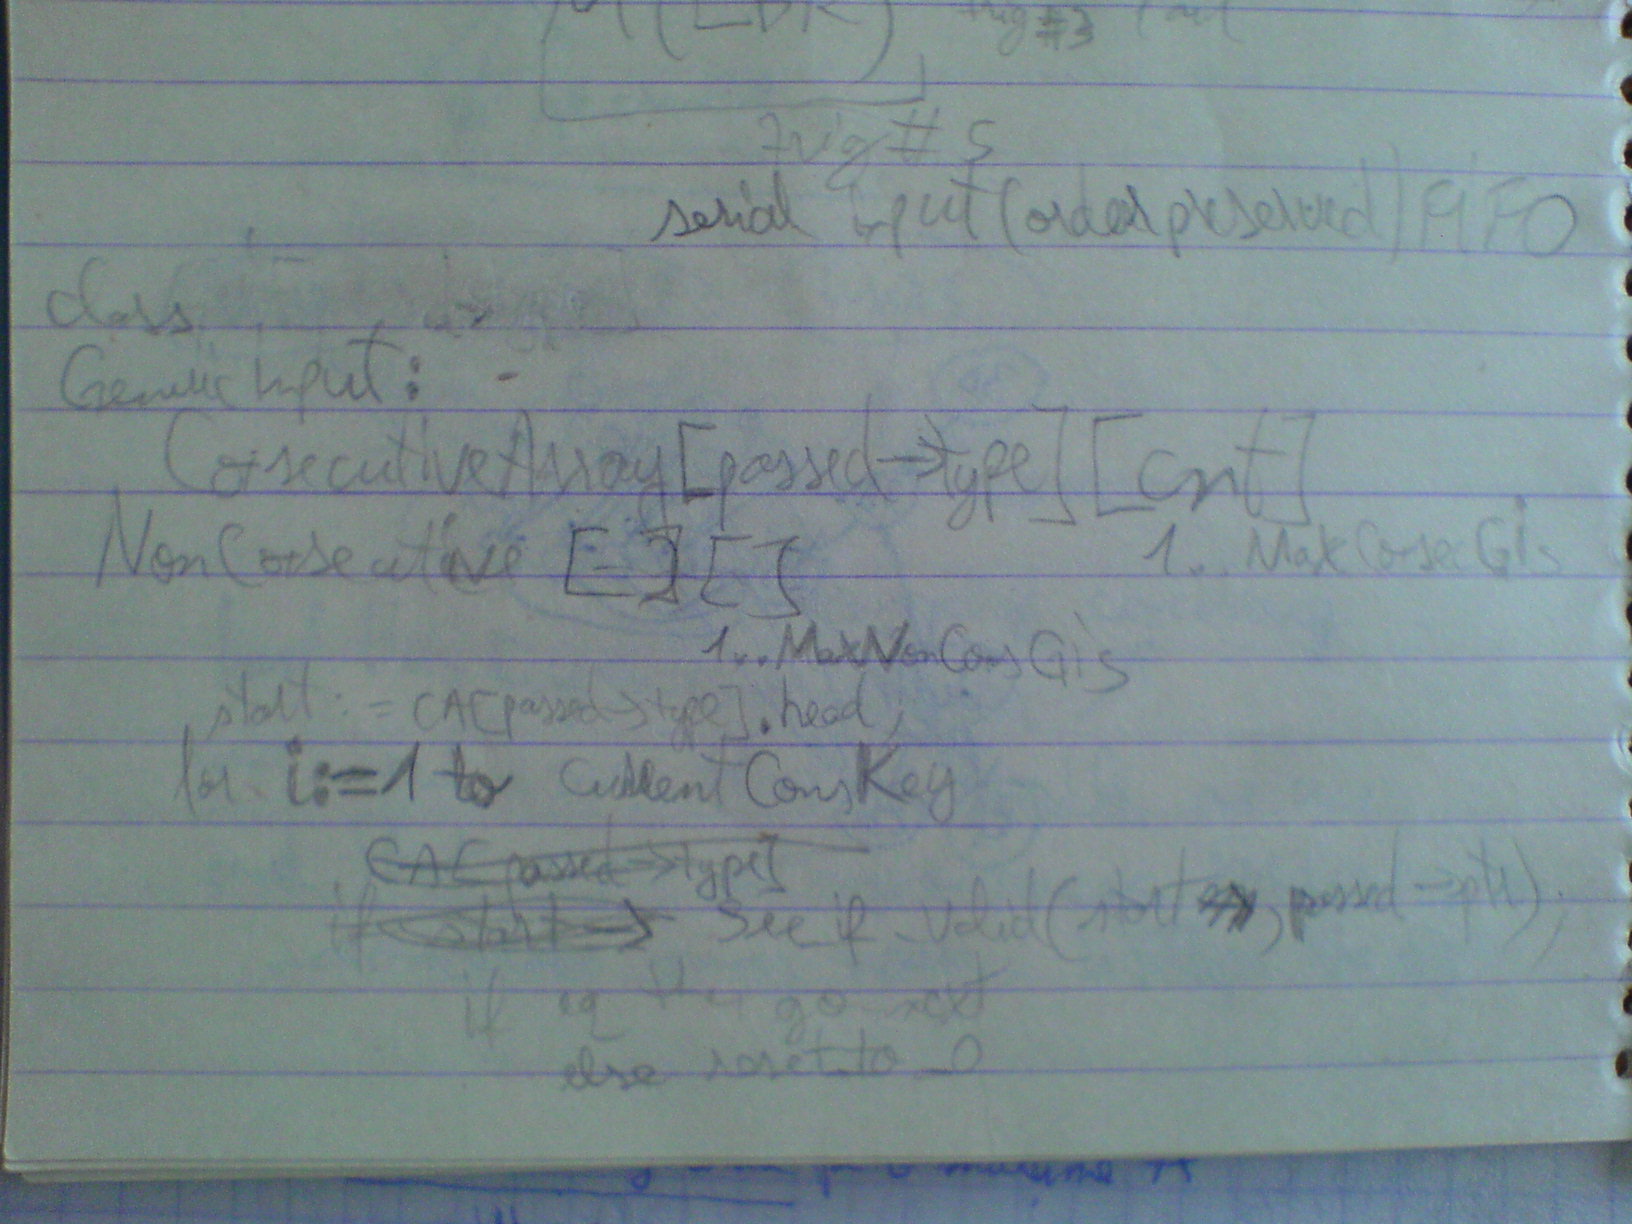 trig #3
trig # 5
serial input (order preserved) FIFO
class
Generic Input :
ConsecutiveArray[passed->type][cnt]
1.. MaxConsecGis
NonConsecutive [-][]
1..MaxNonConsGis
start := CA[passed->type].head;
for i:=1 to currentConsKey
CA[passed->type]
if start-> See if Valid(start, passed->ptr);
if eq go next
else reset to 0